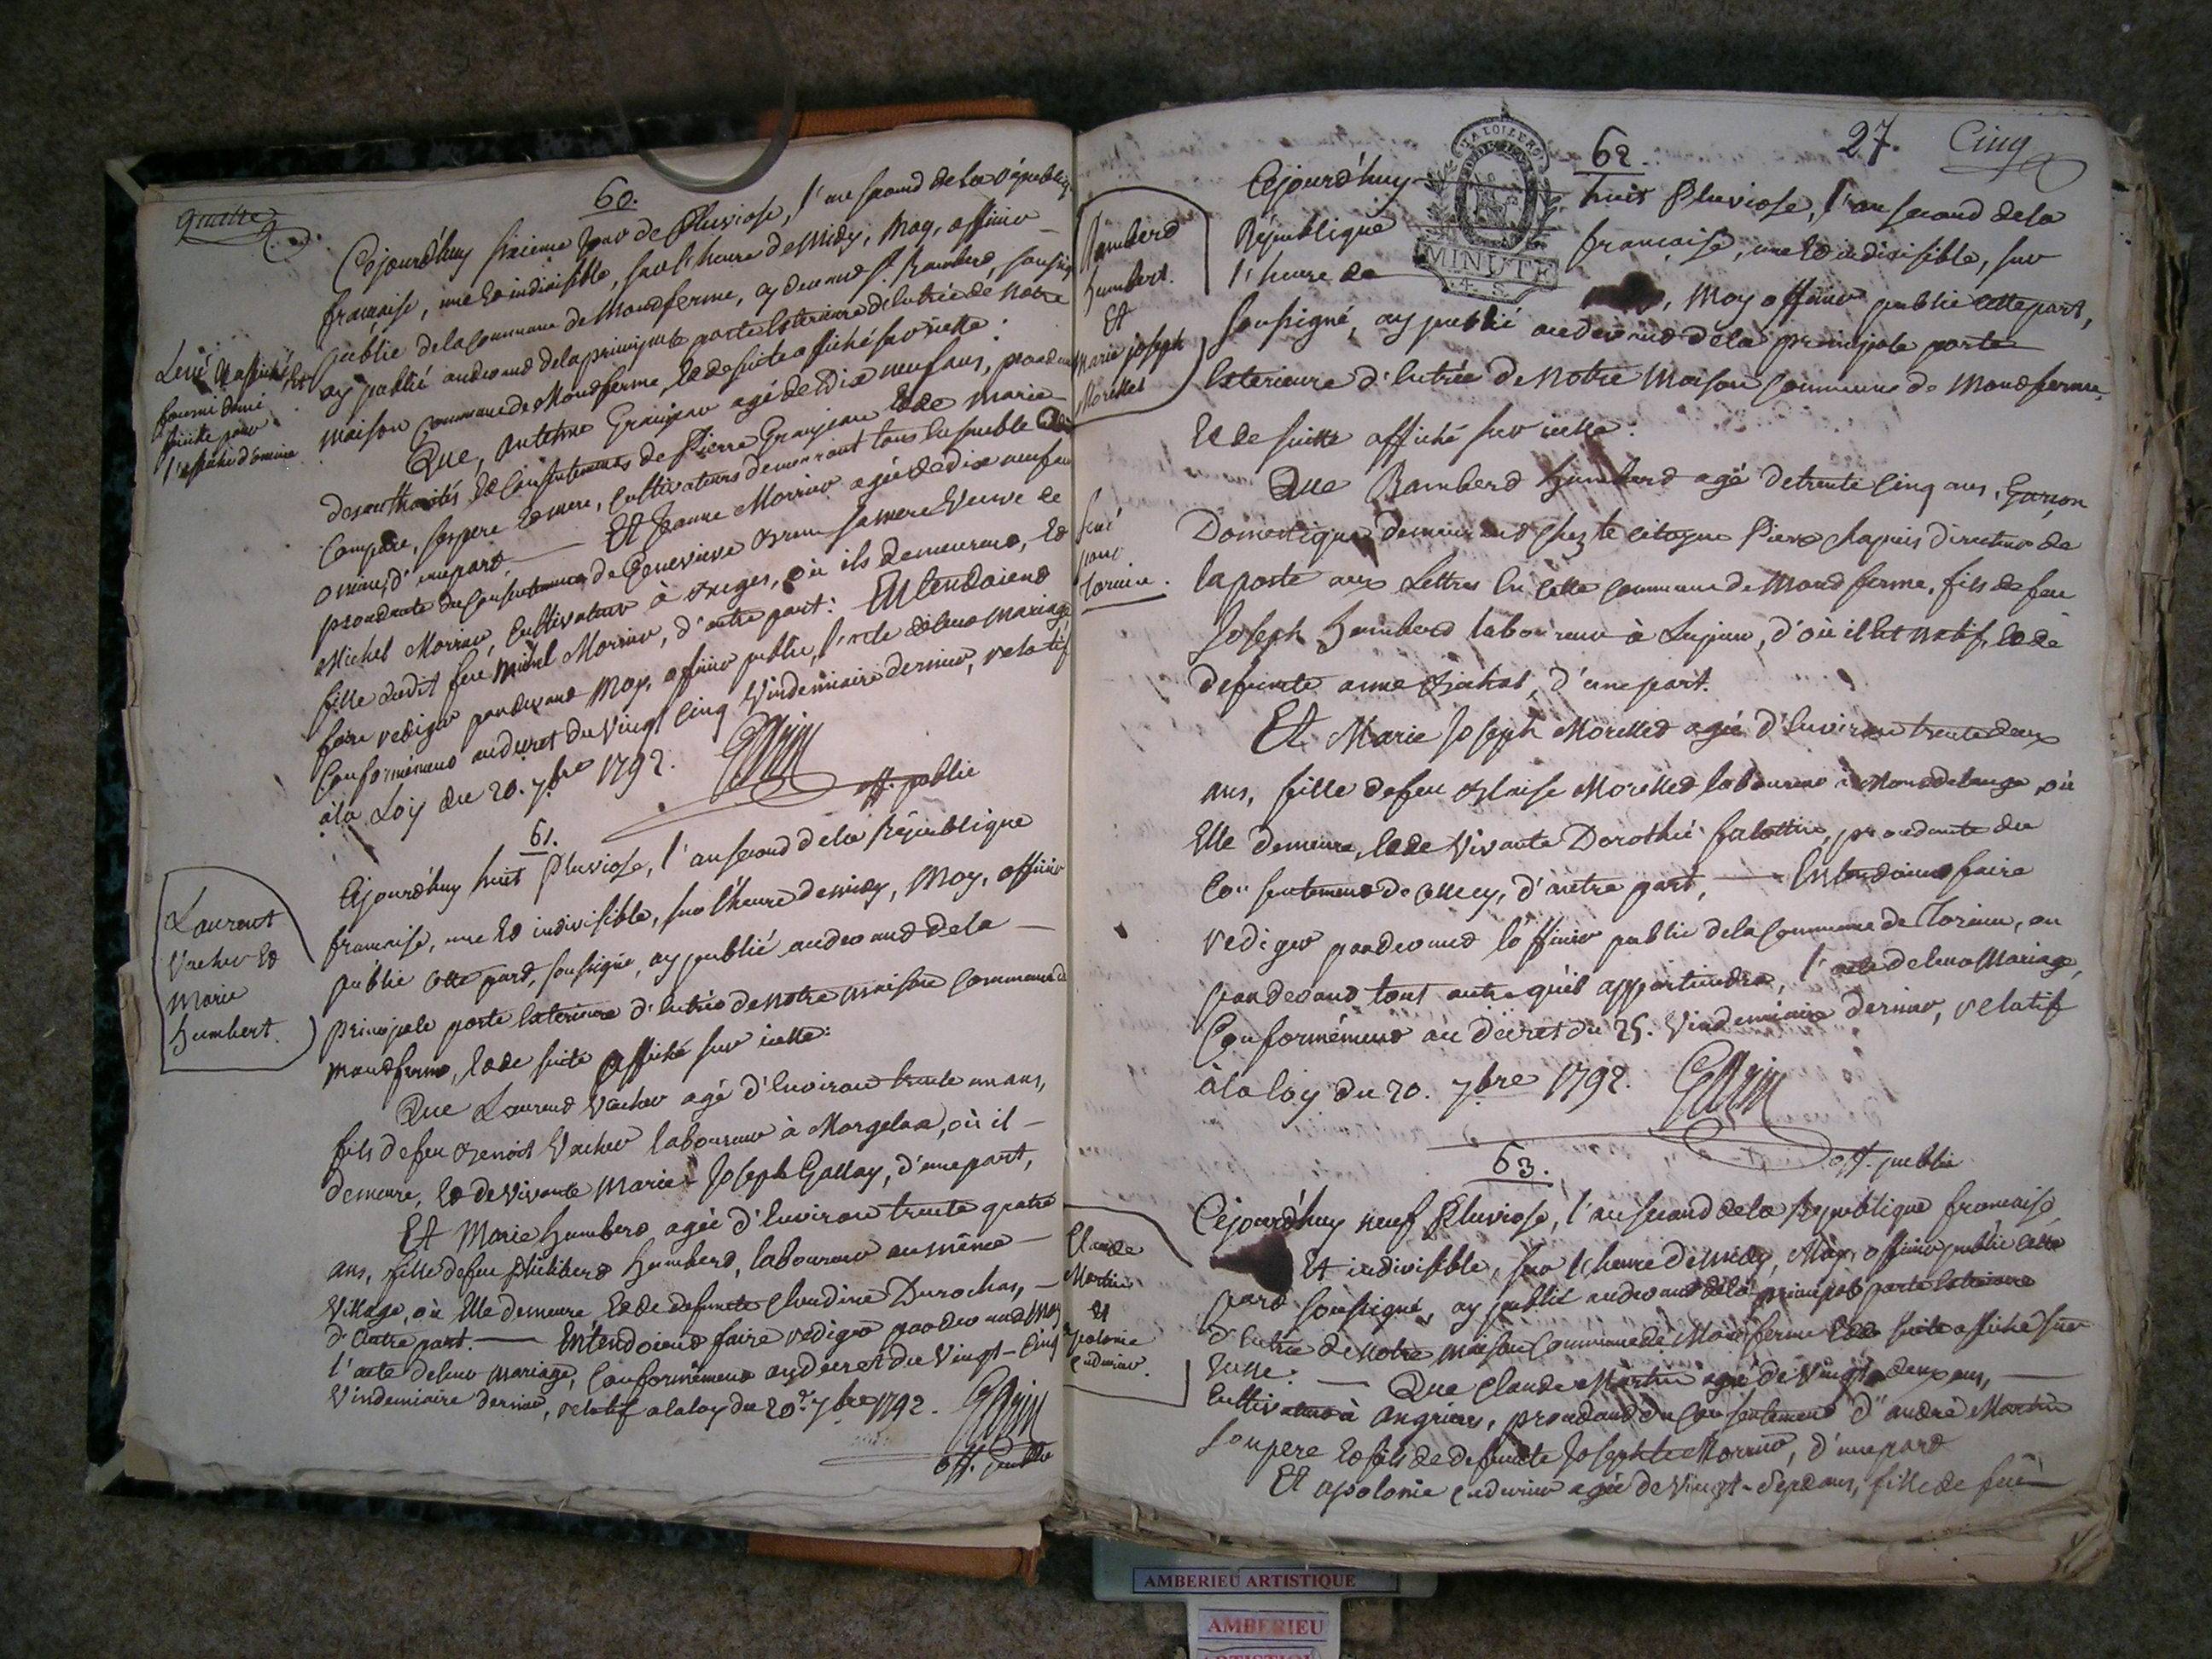 quatre
60.
Cejourd'huy sixieme jour de Pluviose, l'an second de la républiq
francaise, une et indivisible, sur l'heure de midy, Moy, officier
public de la commune de Montferme, cy devant St Rambert, soussig
ay publié audevant de la principale porte exterieure d'entrée de notre
maison commune de Montferme, et de suite affiché sur icelle:
Levé
fourni demi
feuille pour
Que, Antelme Granjean agé de dix neuf ans, procedant
des authorités et consentements de Pierre Granjean et de Marie
Compere, ses pere et mere, cultivateurs demeurant tous ensemble
d'une part. — Et Jeanne Morrier agée de dix neuf ans
procedante du consentement de Genevieve Brun sa mere veuve de
Michel Morrier, cultivateur à Arges, où ils demeurent, et
fille dudit feu Michel Morrier, d'autre part: Entendoient
faire rediger pardevant Moy, officier public, l'acte de leur mariage,
Conformément au decret du vingt cinq Vindemiaire dernier, relatif
à la Loy du 20. 7bre 1792.
off. public
61.
Laurent
Vacher et
Marie
humbert.
Cejourd'huy huit Pluviose, l'an second de la République
francaise, une et indivisible, sur l'heure de midy, Moy, officier
public cette part, soussigné, ay publié audevant de la —
principale porte exterieure d'entrée de notre maison commune de
montferme, et de suite affiché sur icelle:
Que Laurent Vacher agé d'environ trente un ans,
fils de feu Benoit Vacher laboureur à Morgelas, où il —
demeure, et de vivante Marie-Joseph Gallay, d'une part,
Et Marie humbert agée d'environ trente quatre
ans, fille de feu Philibert humbert, laboureur au même —
Village, où Elle demeure, et de defunte Claudine Durochat, —
d'autre part. — Entendoient faire rediger pardevant Moy
l'acte de leur mariage, Conformément au decret du Vingt-Cinq
Vindemiaire dernier, relatif a la loy du 20. 7bre 1792.
off. public
62.
27.
Cinq
LA LOI LE ROI
MINUTE
4. S.
Rambert
humbert.
Et
Marie joseph
Morellet
Cejourd'huy huit Pluviose, l'an second de la
République francaise, une et indivisible, sur
l'heure de , Moy officier public cette part,
soussigné, ay publié audevant de la principale porte
exterieure d'entrée de notre Maison commune de Montferme,
et de suitte affiché sur icelle:
Que Rambert humbert agé de trente cinq ans, Garçon
Domestique demeurant chez le citoyen Pierre Chapuis directeur de
la poste aux Lettres en cette commune de Montferme, fils de feu
Joseph humbert laboureur à , d'où il est natif, et de
defunte anne , d'une part.
pour
torcieu.
Et Marie Joseph Morellet agée d'environ trente deux
ans, fille de feu Blaise Morellet laboureur à Montdelange, où
Elle demeure, et de vivante Dorothée , procedante du
consentement de , d'autre part, — Entendoient faire
rediger pardevant l'officier public de la commune de Torcieu, ou
pardevant tout autre qu'il appartiendra, l'acte de leur Mariage,
Conformément au décret du 25. Vindemiaire dernier, relatif
à la loy du 20. 7bre 1792.
off. public
63.
Claude
Martin
Et
apolonie
Cejourd'huy neuf Pluviose, l'an second de la République francaise
Et indivisible, sur l'heure de midy, Moy, officier public cette
part soussigné, ay publié audevant de la principale porte exterieure
d'entrée de notre maison commune de Montferme et de suite affiché sur
icelle: — Que Claude Martin agé de vingt deux ans, —
cultivateur à angrieres, procedant du consentement d'andré Martin
son pere et fils de defunte Josephte Morrier, d'une part
Et apolonie agée de vingt-sept ans, fille de feu —
AMBERIEU ARTISTIQUE
AMBERIEU
ARTISTIQUE